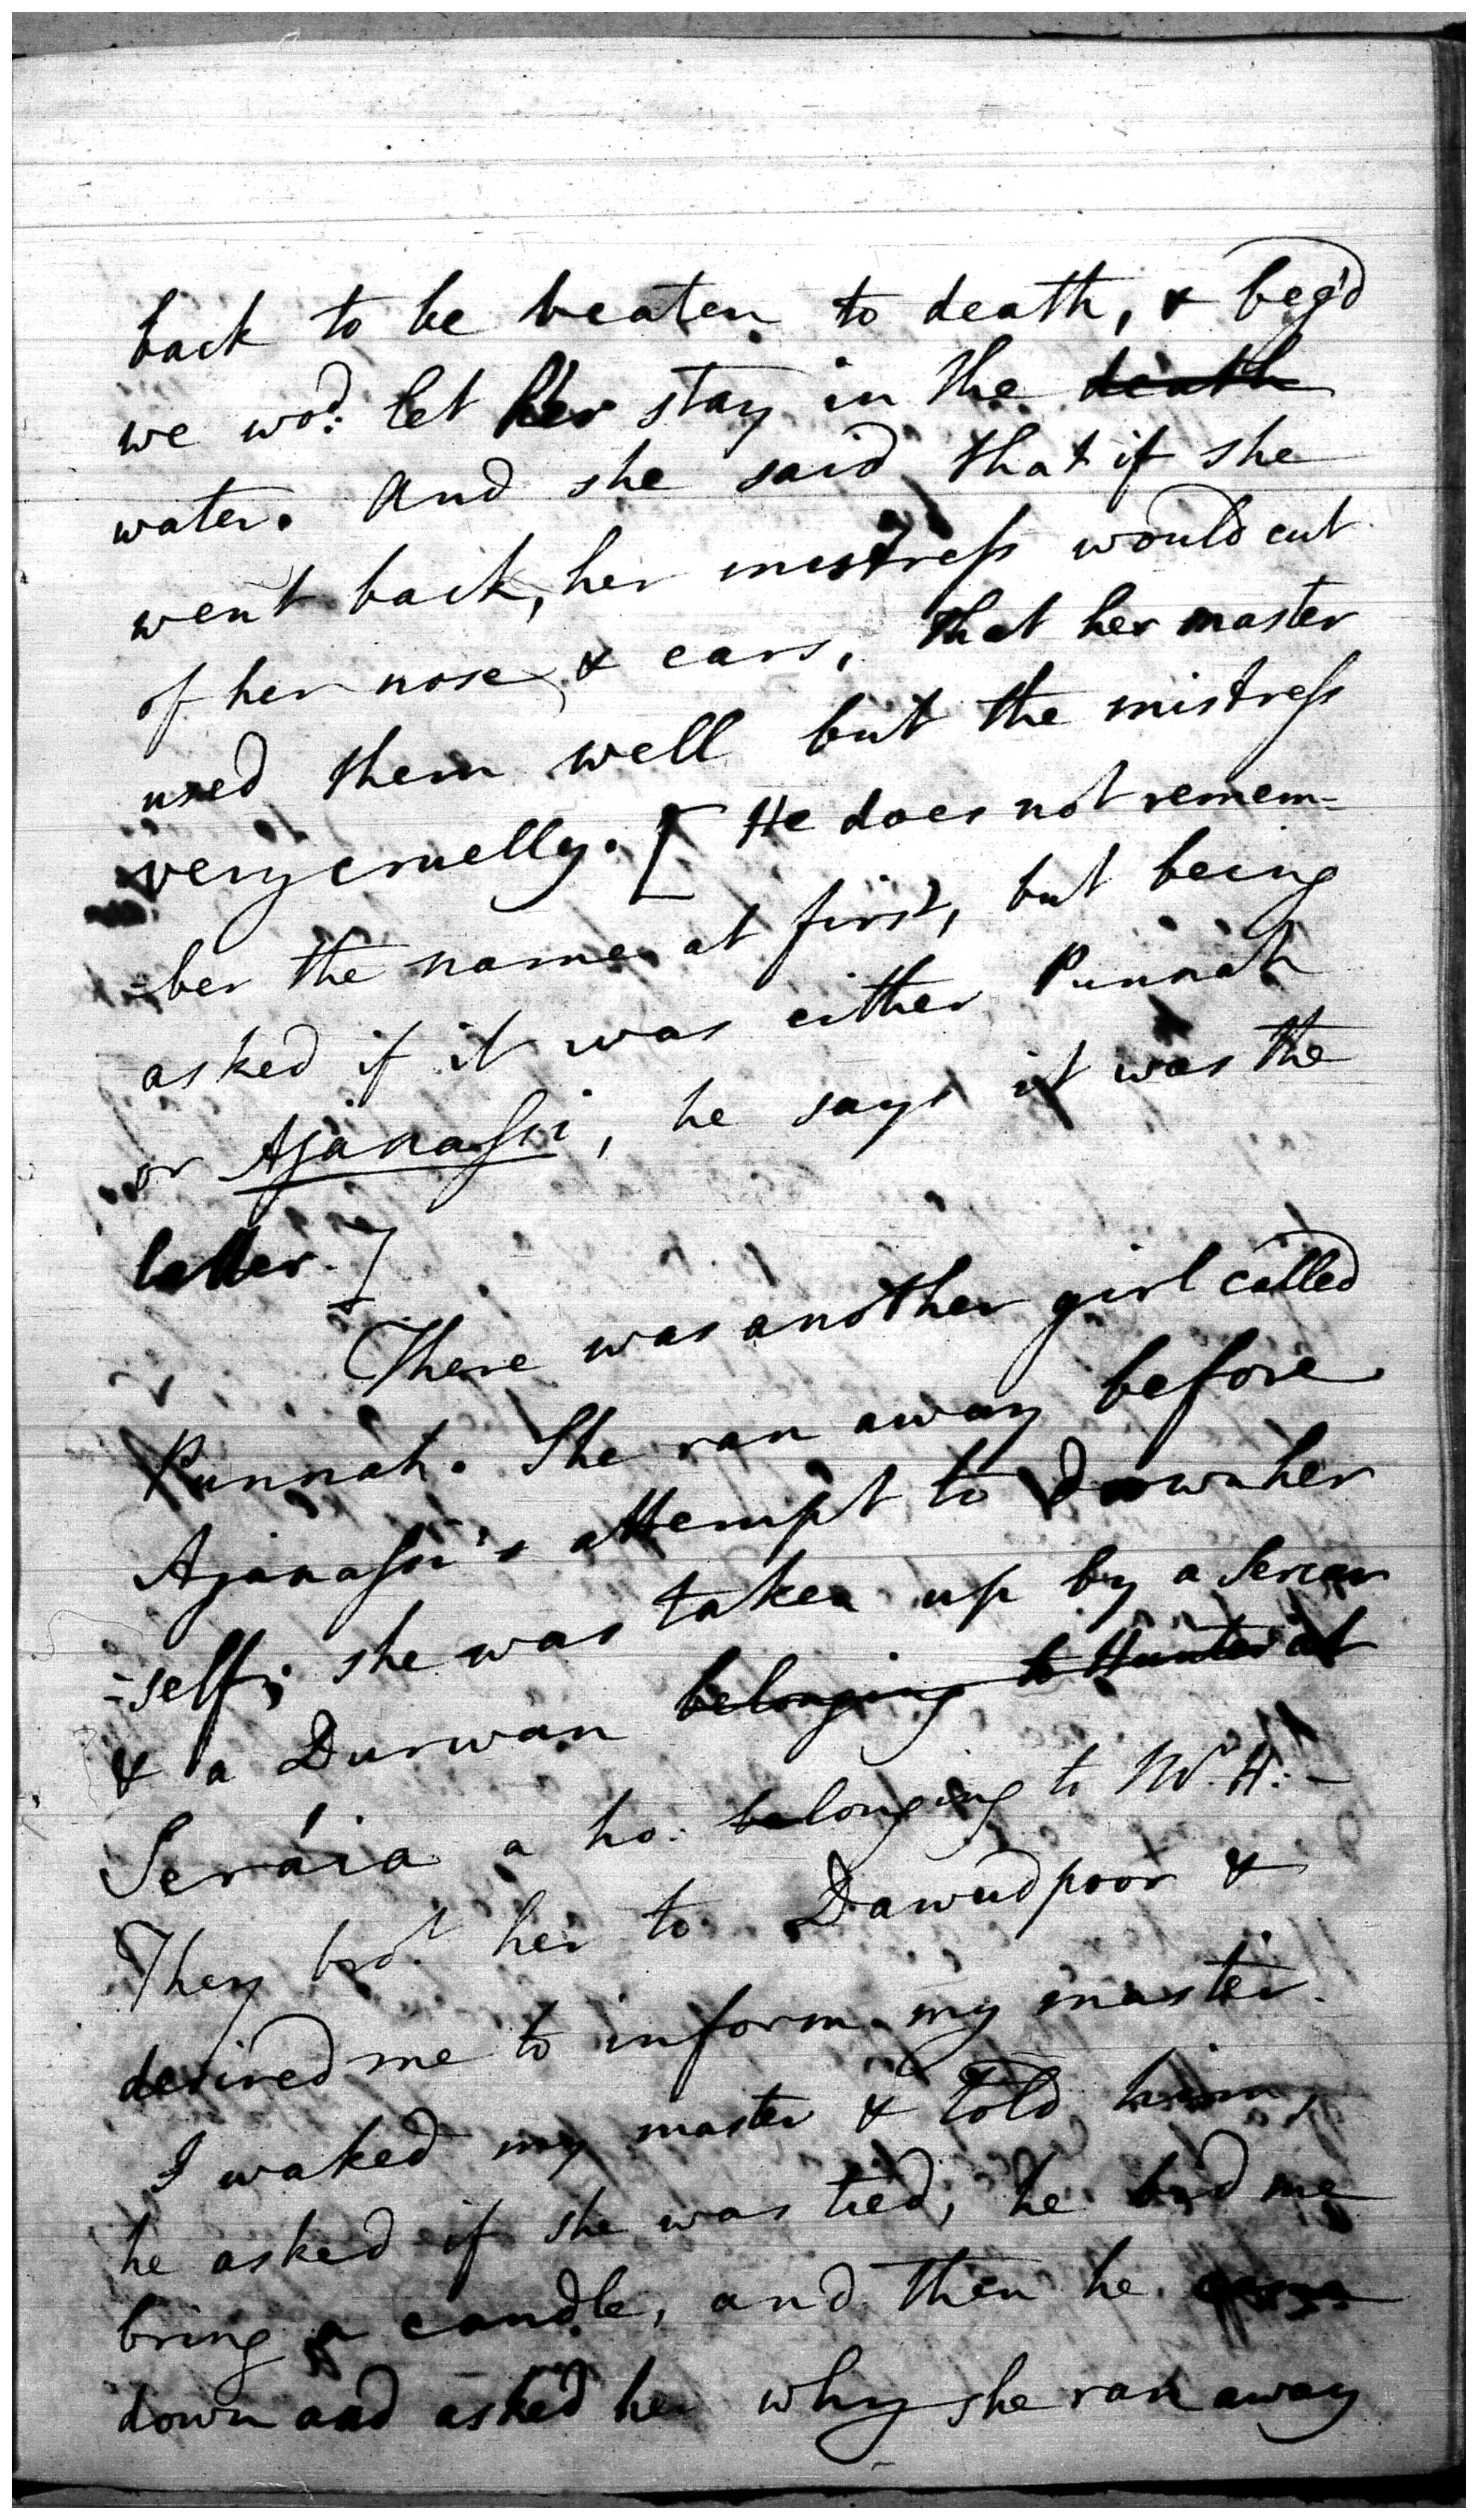 back to be beaten to death, & beg'd
we wod. let her stay in the death
water. And she said that if she
went back, her mistress would cut
of her nose & ears, that her master
used them well but the mistress
very cruelly. [ He does not remem-
-ber the name at first, but being
asked if it was either Punnah
or Ajanassi, he says it was the
latter. ]
There was another girl called
Punnah. She ran away before
Ajanassi's attempt to drown her
-self; she was taken up by a Sercar
& a Durwan belonging to Hunter at
Seráia a ho. belonging to Mr. H. -
They brot. her to Dawudpoor &
desired me to inform my master.
I waked my master & told him,
he asked if she was tied, he bid me
bring a candle, and then he
down and asked her why she ran away